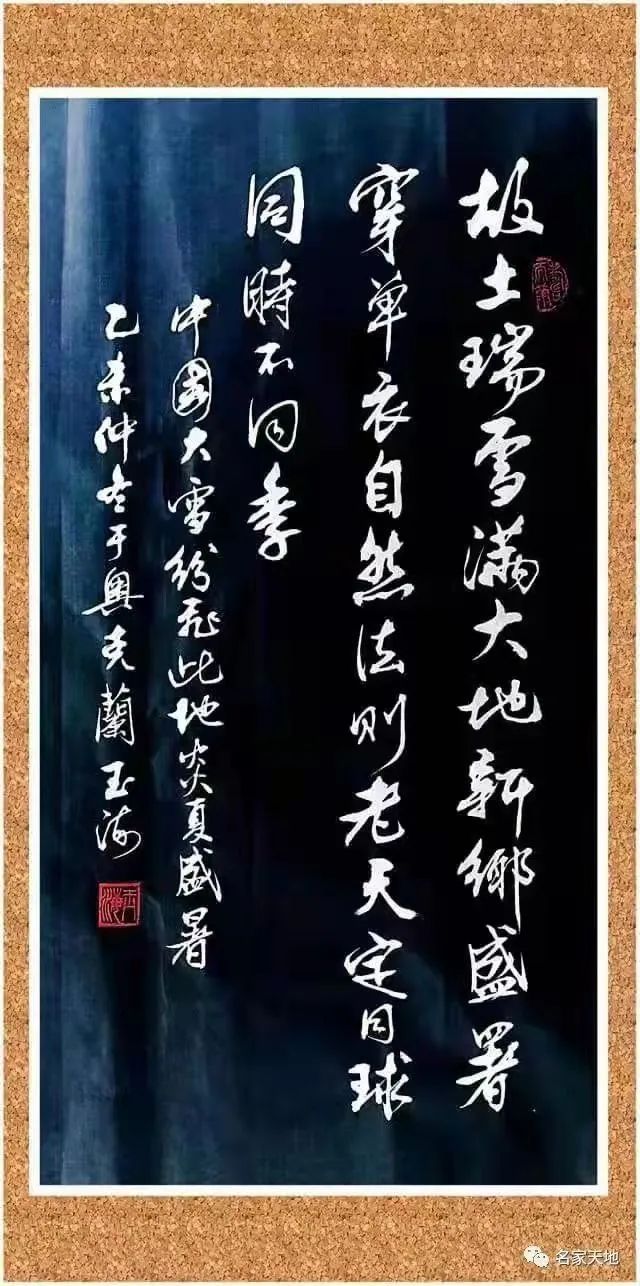 故土瑞雪满大地新鄉盛署
穿单衣自然法则老天定同球
同時不同季
中國大雪纷飛此地炎夏盛暑
乙未仲冬于奥克蘭玉海
玉海
名家天地